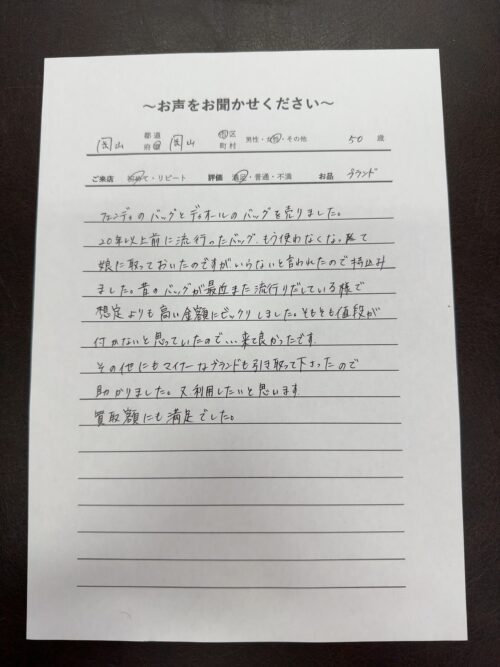 ～お声をお聞かせください～
岡山 都道府県 岡山 市区町村 男性・女性・その他 50 歳
ご来店 初めて・リピート 評価 満足・普通・不満 お品 ブランド
フェンディのバッグとディオールのバッグを売りました。
20年以上前に流行ったバッグ、もう使わなくなって
娘に取っておいたのですがいらないと言われたので持込み
ました。昔のバッグが最近また流行りだしている様で
想定よりも高い金額にビックリしました。そもそも値段が
付かないと思っていたので、、、来て良かったです。
その他にもマイナーなブランドも引き取って下さったので
助かりました。又利用したいと思います。
買取額にも満足でした。